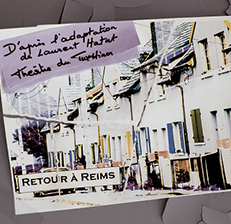 D'après l'adaptation
de Laurent Hatat
Théâtre du
RETOUR À REIMS